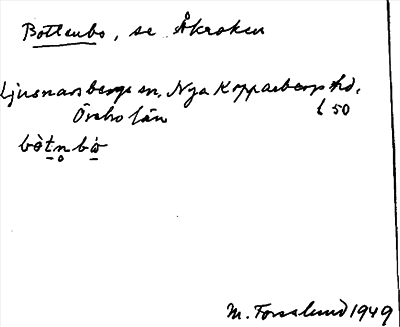 Bottenbo, se Åkroken
Ljusnarsbergs sn, Nya Kopparbergs hd,
Örebro län
l 50
bòtn̥bò
M. Forslund 1949